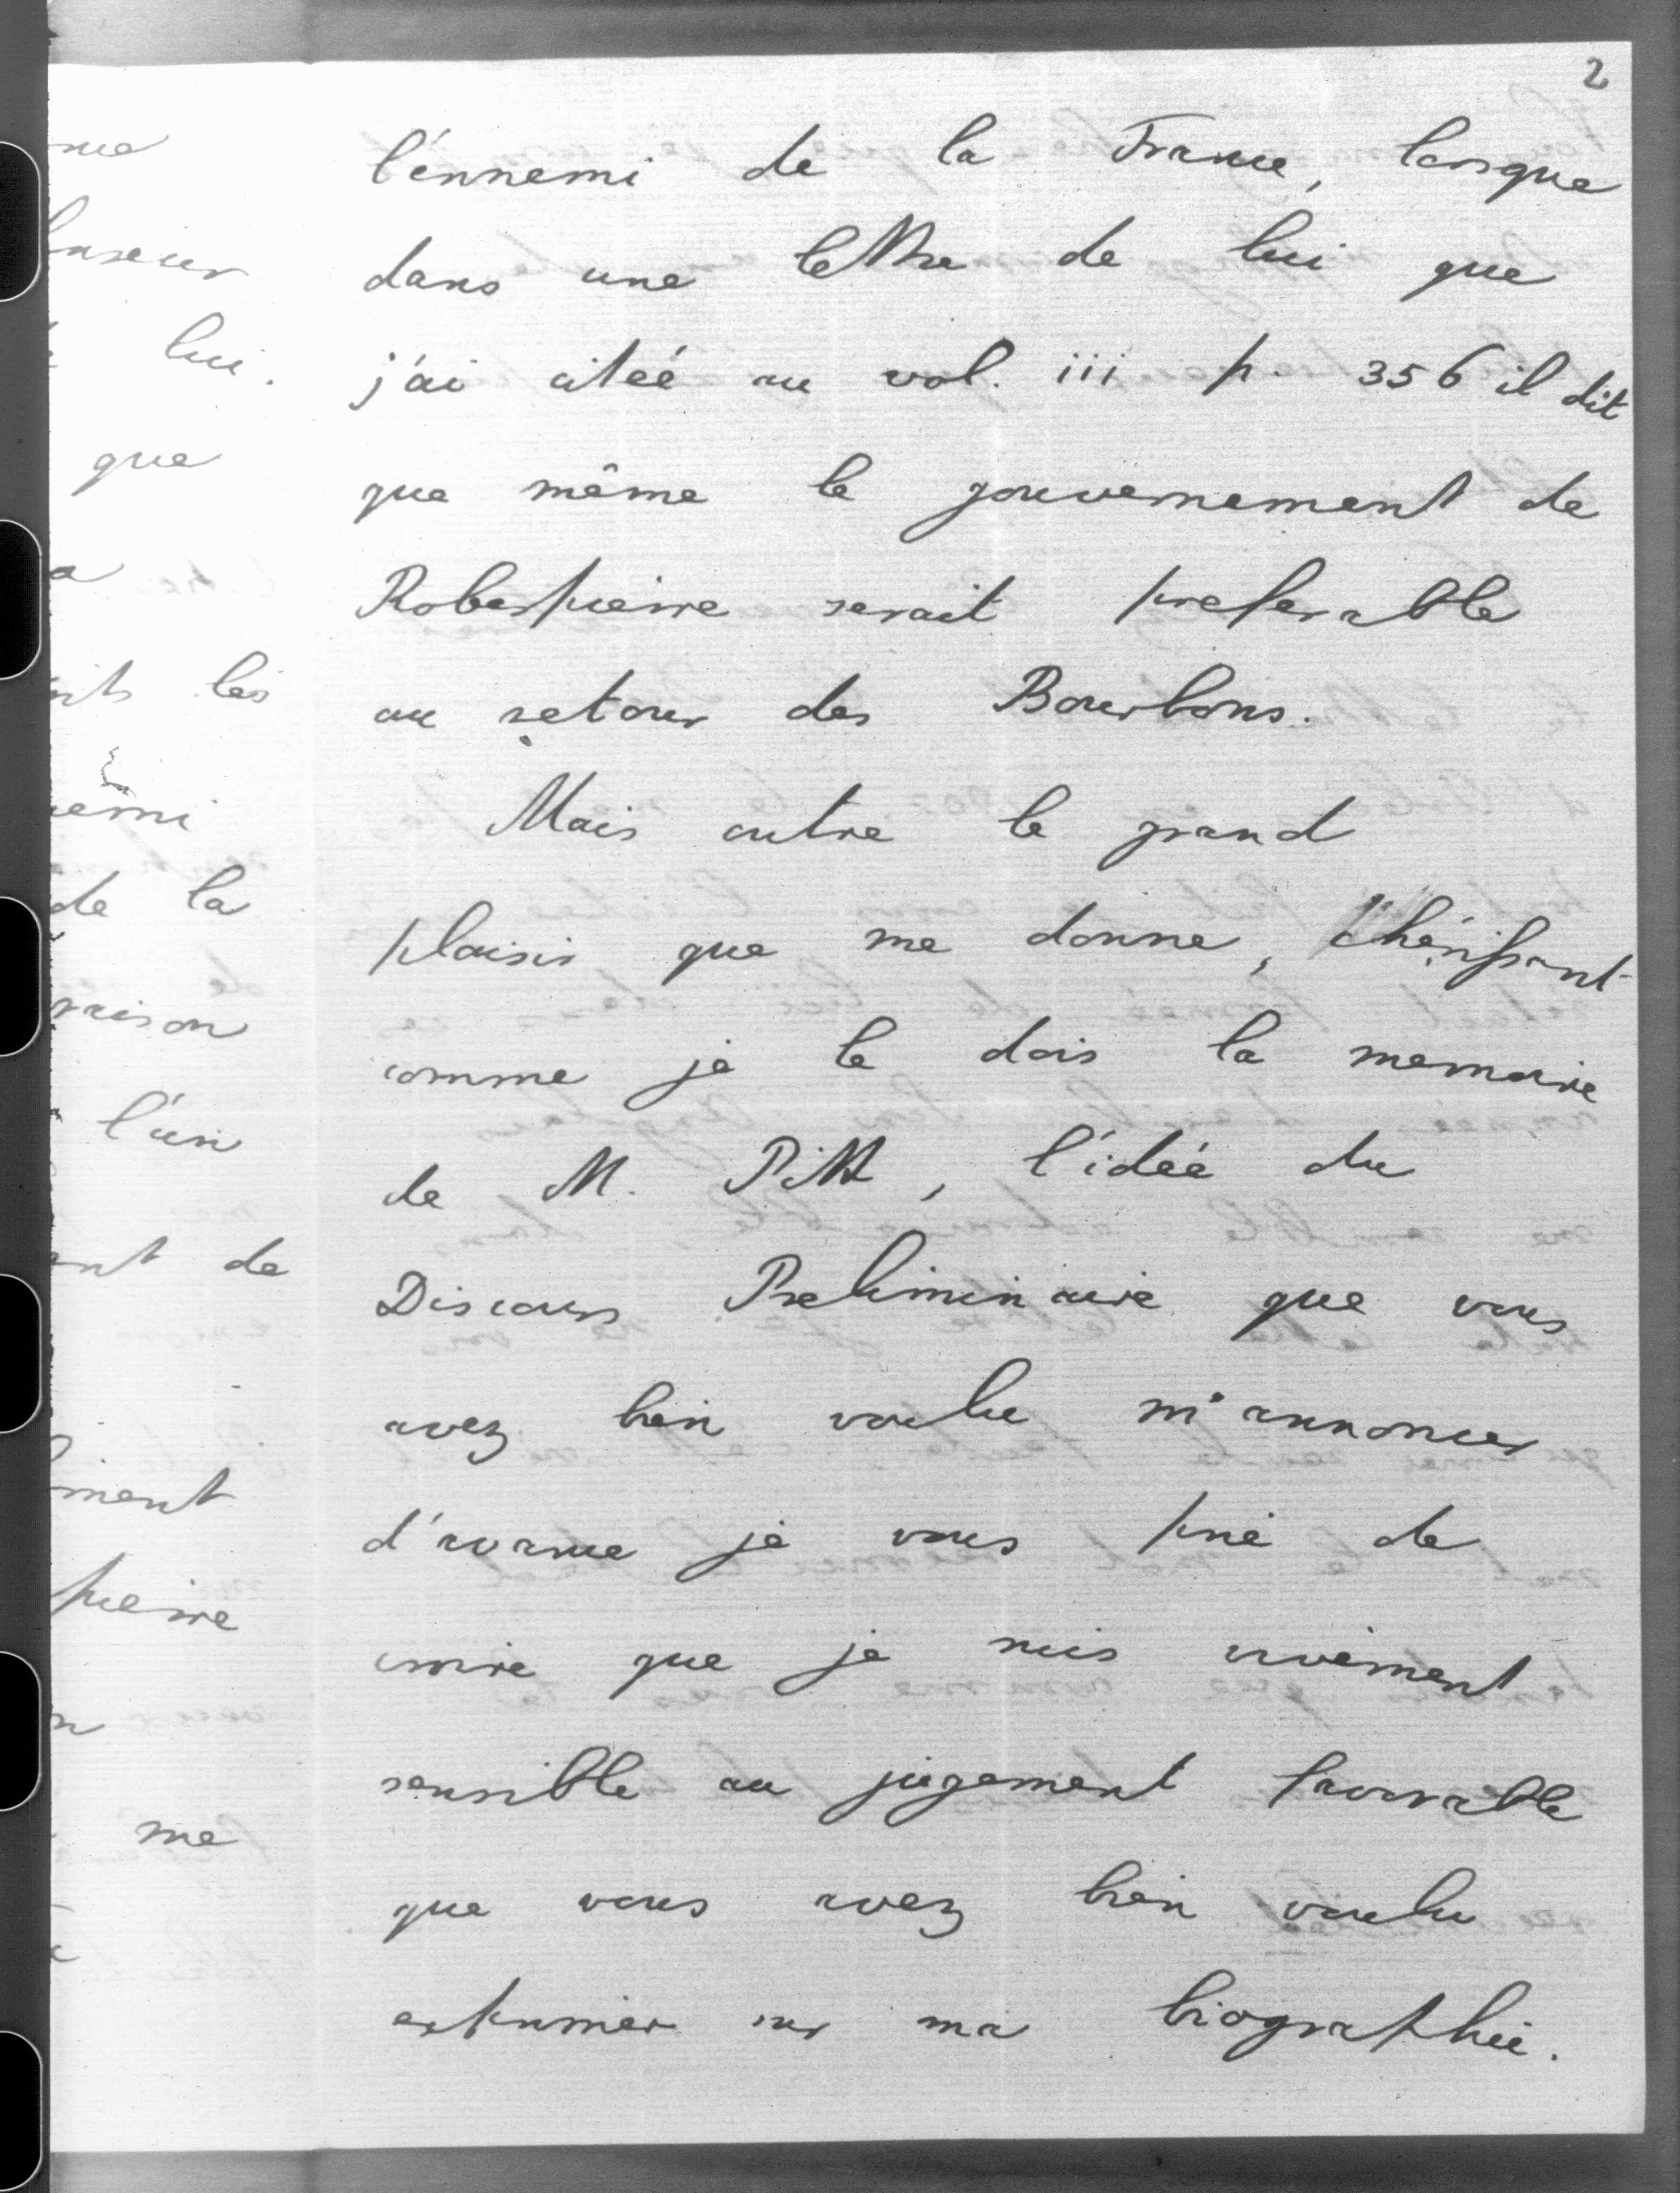 2
l'énnemi de la France, lorsque
dans une lettre de lui que
j'ai citéé au vol. iii p. 356 il dit
que même le gouvernement de
Robespierre serait preferable
au retour des Bourbons.
Mais outre le grand
plaisir que me donne, chérissant
comme je le dois la memoire
de M. Pitt, l'idéé du
Discours Preliminaire que vous
avez bien voulu m'annoncer
d'avance je vous prie de
croire que je suis vivement
sensible au jugement favorable
que vous avez bien voulu
exprimer sur ma biographie.
me
lui.
que
les
de la
raison
l'un
de
me